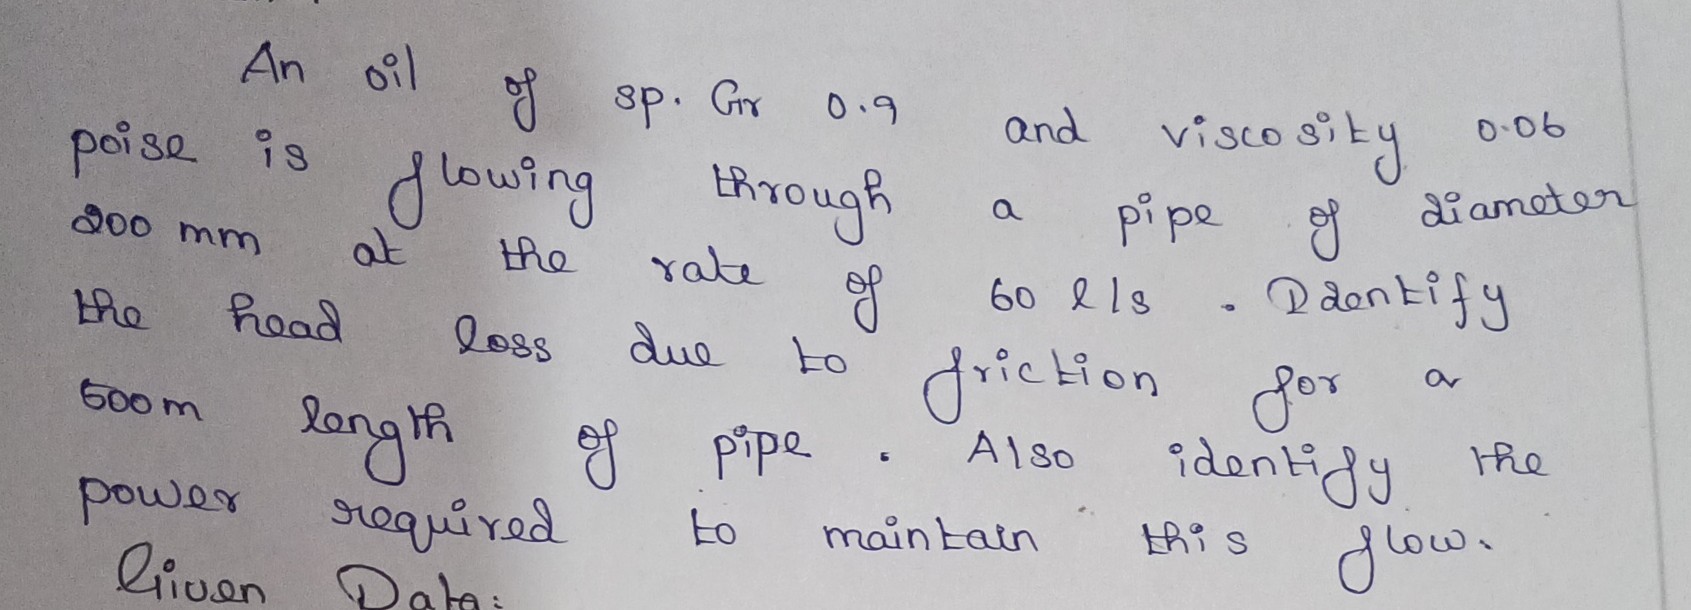 An oil of sp. Gr 0.9 and viscosity 0.06
poise is flowing through a pipe of diameter
200 mm at the rate of 60 l/s. Identify
the head loss due to friction for a
500m length of pipe. Also identify the
power required to maintain this flow.
Given Data: